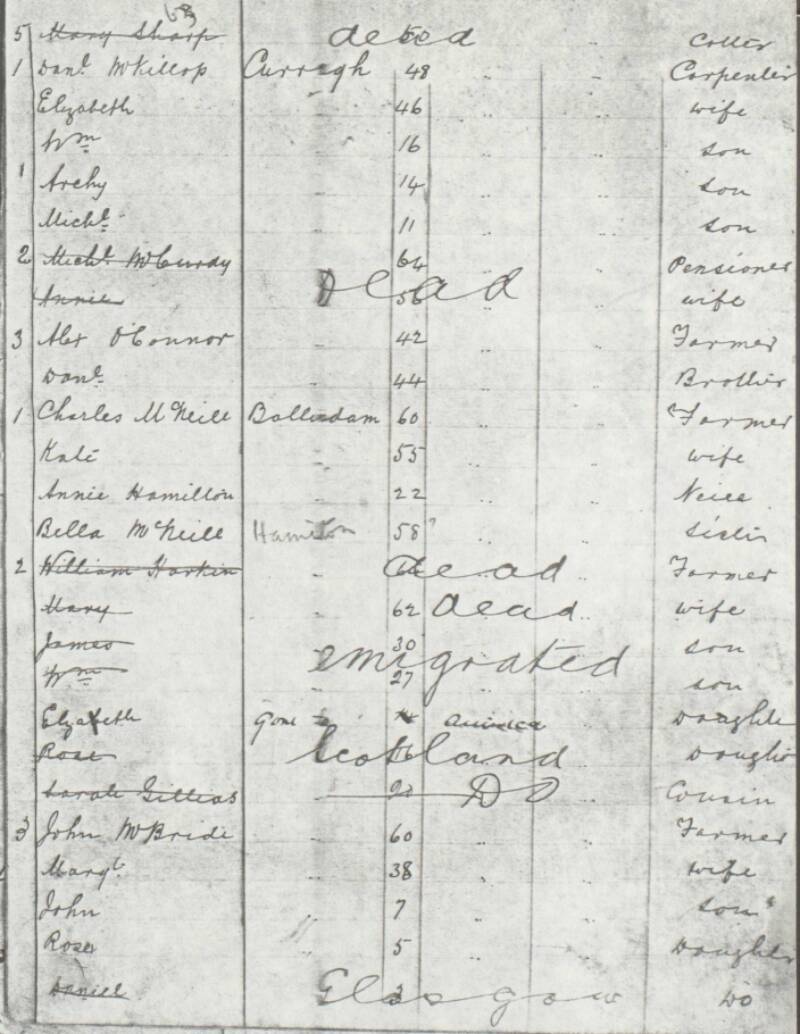 68
5 Mary Sharp deted Cotter
1 Danl. McKillop Curragh 48 " " Carpenter
Elizabeth " 46 " " wife
Wm " 16 " " son
1 Archy " 14 " " son
Michl. " 11 " " son
2 Michl. McCurdy 64 Pensioner
Annie Dead 56 wife
3 Alex O'Connor " 42 " " Farmer
Danl. " 44 " " Brother
1 Charles McNeill 60 " " Farmer
Kate " 55 " " wife
Annie Hamilton " 22 " " Neice
Bella McNeill Hamilton 58 " " Sister
2 William Harkin " dead Farmer
Mary " 62 dead " wife
James 30 son
Wm emigrated 27 son
Elizabeth gone to America Daughte
Rose Scotland Daughter
Sarah Gillias DO Cousin
3 John McBride " 60 " " Farmer
Margt. " 38 " " wife
John " 7 " " son
Rose " 5 " " Daughter
Daniel Glasgow Do